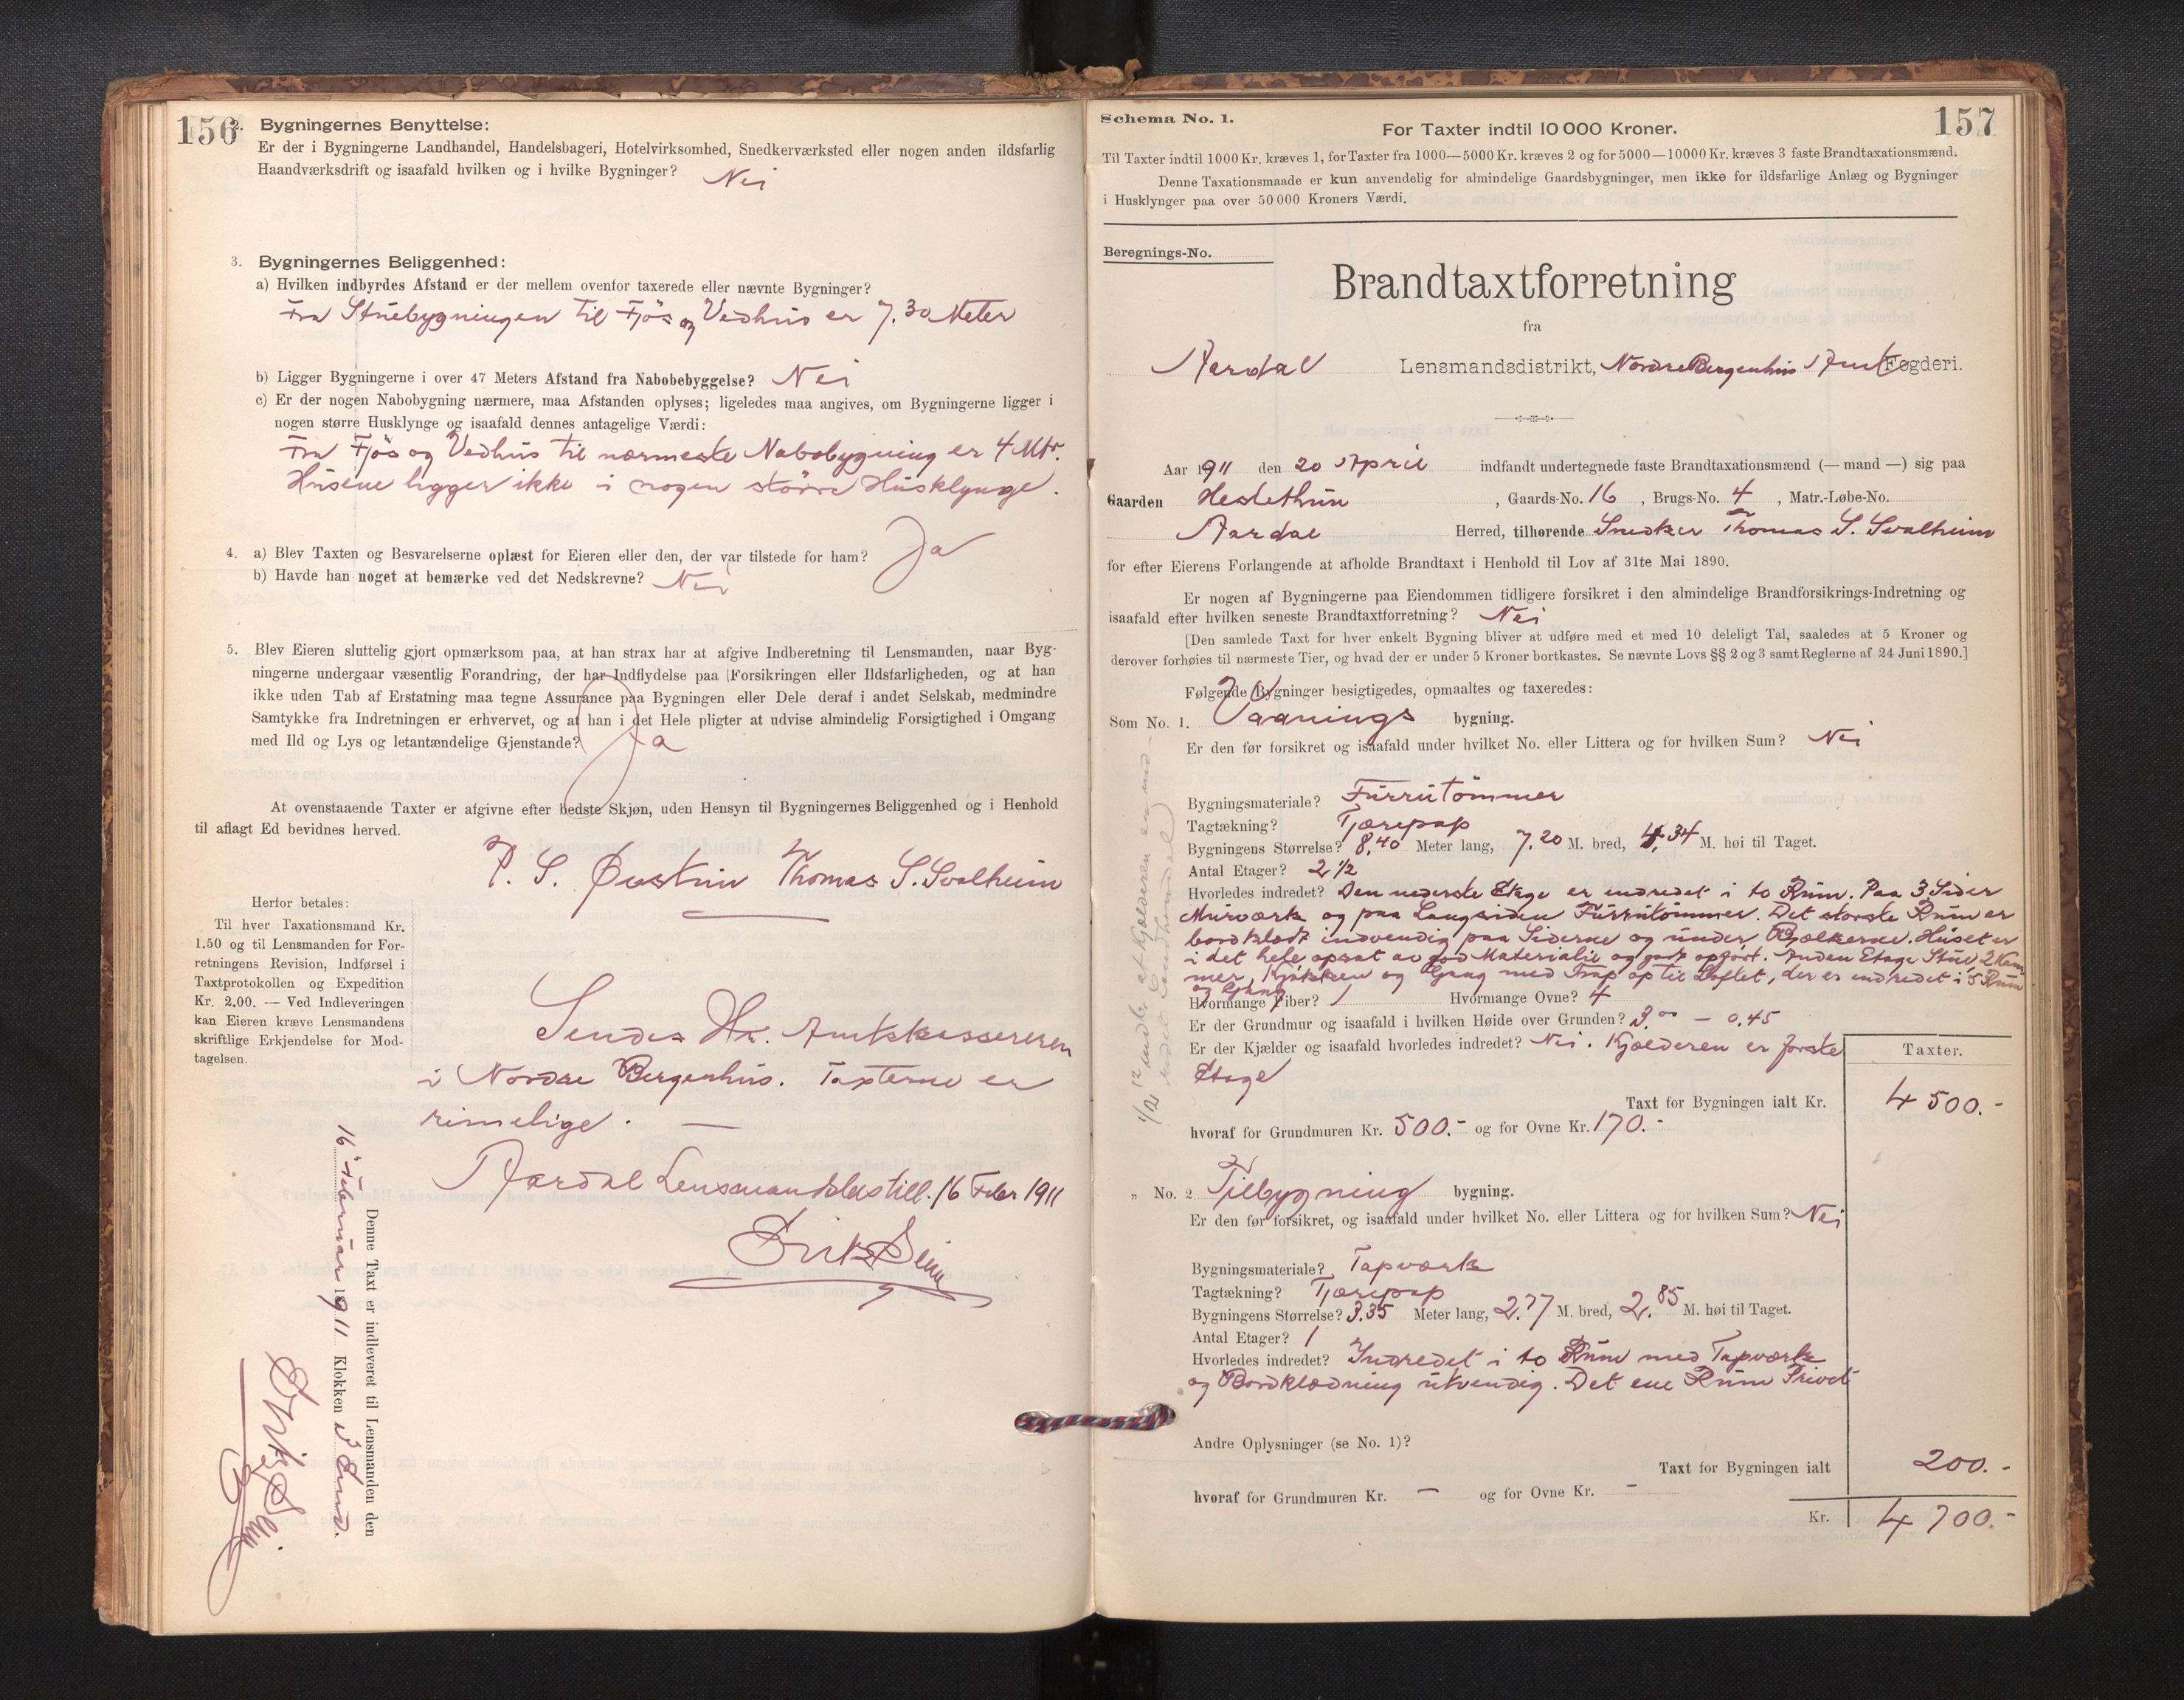 156
2. Bygningernes Benyttelse:
Er der i Bygningerne Landhandel, Handelsbageri, Hotelvirksomhed, Snedkerværksted eller nogen anden ildsfarlig
Haandværksdrift og isaafald hvilken og i hvilke Bygninger? Nei
3. Bygningernes Beliggenhed:
a) Hvilken indbyrdes Afstand er der mellem ovenfor taxerede eller nævnte Bygninger?
Fra Stuebygningen til Fjøs og Vedhus er 7.30 Meter
b) Ligger Bygningerne i over 47 Meters Afstand fra Nabobebyggelse? Nei
c) Er der nogen Nabobygning nærmere, maa Afstanden oplyses; ligeledes maa angives, om Bygningerne ligger i
nogen større Husklynge og isaafald dennes antagelige Værdi:
Fra Fjøs og Vedhus til nærmeste Nabobygning er 4 Mtr.
Husene ligger ikke i nogen større Husklynge.
4. a) Blev Taxten og Besvarelserne oplæst for Eieren eller den, der var tilstede for ham? Ja
b) Havde han noget at bemærke ved det Nedskrevne? Nei
5. Blev Eieren sluttelig gjort opmærksom paa, at han strax har at afgive Indberetning til Lensmanden, naar Byg-
ningerne undergaar væsentlig Forandring, der har Indflydelse paa Forsikringen eller Ildsfarligheden, og at han
ikke uden Tab af Erstatning maa tegne Assurance paa Bygningen eller Dele deraf i andet Selskab, medmindre
Samtykke fra Indretningen er erhvervet, og at han i det Hele pligter at udvise almindelig Forsigtighed i Omgang
med Ild og Lys og letantændelige Gjenstande? Ja
At ovenstaaende Taxter er afgivne efter bedste Skjøn, uden Hensyn til Bygningernes Beliggenhed og i Henhold
til aflagt Ed bevidnes herved.
P. S. Øvstun Thomas S. Svalheim
Herfor betales:
Til hver Taxationsmand Kr.
1.50 og til Lensmanden for For-
retningens Revision, Indførsel i
Taxtprotokollen og Expedition
Kr. 2.00. — Ved Indleveringen
kan Eieren kræve Lensmandens
skriftlige Erkjendelse for Mod-
tagelsen.
Sendes Hr. Amtskassereren
i Nordre Bergenhus. Taxterne er
rimelige. —
Aardal Lensmandsbestill. 16 Febr 1911
Denne Taxt er indleveret til Lensmanden den
16 Februar 1911 Klokken 3 Emd.
157
Schema No. 1.
For Taxter indtil 10 000 Kroner.
Til Taxter indtil 1000 Kr. kræves 1, for Taxter fra 1000—5000 Kr. kræves 2 og for 5000—10000 Kr. kræves 3 faste Brandtaxationsmænd.
Denne Taxationsmaade er kun anvendelig for almindelige Gaardsbygninger, men ikke for ildsfarlige Anlæg og Bygninger
i Husklynger paa over 50 000 Kroners Værdi.
Beregnings-No.
Brandtaxtforretning
fra
Aardal Lensmandsdistrikt, Nordre Bergenhus Amt Fogderi.
Aar 1911 den 20 April indfandt undertegnede faste Brandtaxationsmænd (— mand —) sig paa
Gaarden Hestethun, Gaards-No. 16, Brugs-No. 4, Matr.-Løbe-No.
Aardal Herred, tilhørende Snedker Thomas S. Svalheim
for efter Eierens Forlangende at afholde Brandtaxt i Henhold til Lov af 31te Mai 1890.
Er nogen af Bygningerne paa Eiendommen tidligere forsikret i den almindelige Brandforsikrings-Indretning og
isaafald efter hvilken seneste Brandtaxtforretning? Nei
[Den samlede Taxt for hver enkelt Bygning bliver at udføre med et med 10 deleligt Tal, saaledes at 5 Kroner og
derover forhøies til nærmeste Tier, og hvad der er under 5 Kroner bortkastes. Se nævnte Lovs §§ 2 og 3 samt Reglerne af 24 Juni 1890.]
Følgende Bygninger besigtigedes, opmaaltes og taxeredes:
Som No. 1. Vaanings bygning.
Er den før forsikret og isaafald under hvilket No. eller Littera og for hvilken Sum? Nei
Bygningsmateriale? Furrutømmer
Tagtækning? Tjærepap
Bygningens Størrelse? 8,40 Meter lang, 7.20 M. bred, 4.34 M. høi til Taget.
Antal Etager? 2 1/2
Hvorledes indredet? Den nederste Etage er indredet i to Rum. Paa 3 Sider
Murværk og paa Langsiden Furrutømmer. Det største Rum er
bordklædt indvendig paa Siderne og under Bjælkerne. Huset er
i det hele opsat av god Materialie og godt opført. Anden Etage Stue, 2 Kam
mer, Kjøkken og Gang med Trap op til Loftet, der er indredet i 5 Rum
og Gang
Hvormange Piber? 1 Hvormange Ovne? 4
Er der Grundmur og isaafald i hvilken Høide over Grunden? 3.00 — 0.45
Er der Kjælder og isaafald hvorledes indredet? Nei. Kjælderen er første
Etage
Taxter.
Taxt for Bygningen ialt Kr. 4 500.-
hvoraf for Grundmuren Kr. 500.- og for Ovne Kr. 170.-
„ No. 2 Tilbygning bygning.
Er den før forsikret, og isaafald under hvilket No. eller Littera og for hvilken Sum? Nei
Bygningsmateriale? Tapværk
Tagtækning? Tjærepap
Bygningens Størrelse? 3.35 Meter lang, 2.77 M. bred, 2.85 M. høi til Taget.
Antal Etager? 1
Hvorledes indredet? Indredet i to Rum med Tapværk
og Bordklædning utvendig. Det ene Rum Privet
Andre Oplysninger (se No. 1)?
Taxt for Bygningen ialt 200.-
hvoraf for Grundmuren Kr. — og for Ovne Kr. —
Kr. 4 700.-